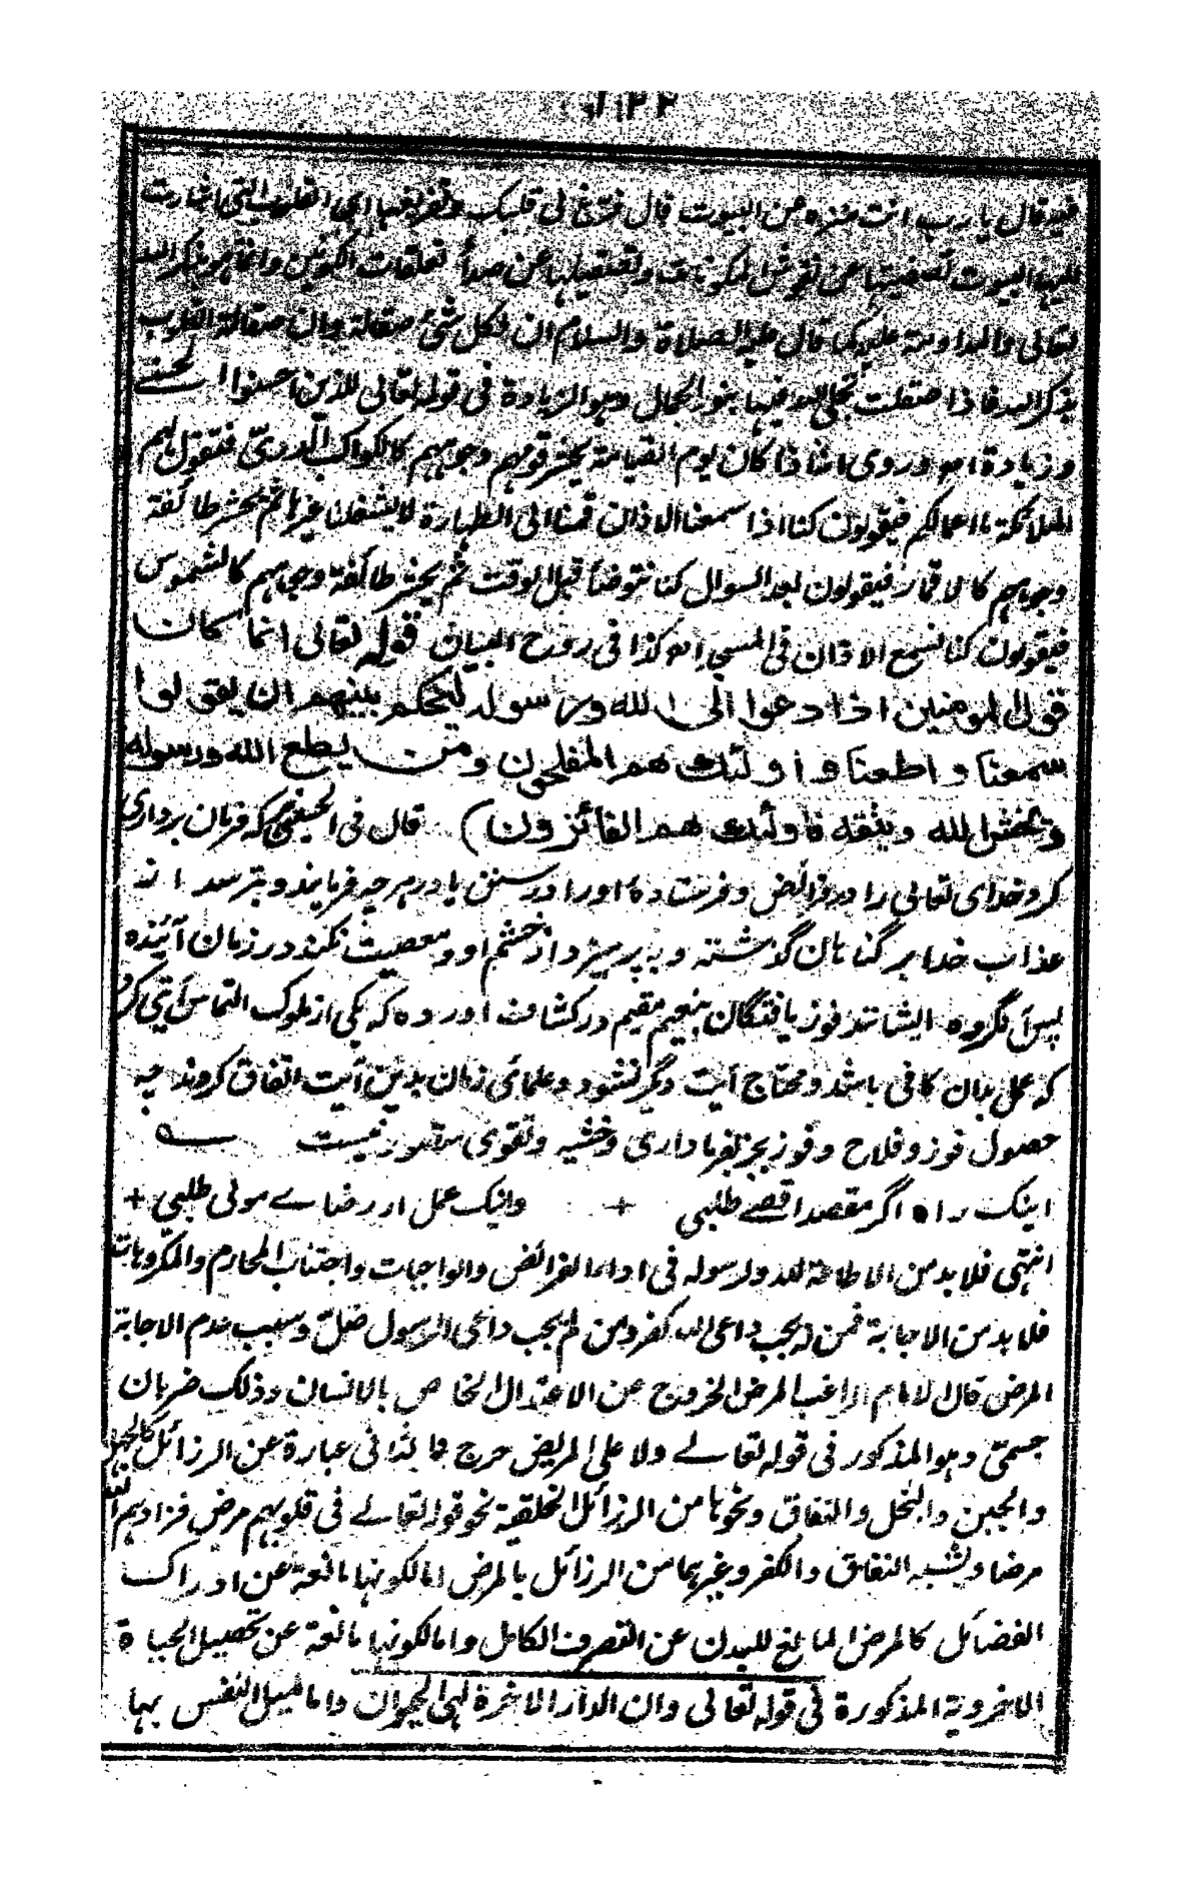 فیقال یا رب انت منزه عن البیوت قال فرغ لی قلبک وتفریغها ای القلوب التی اشارت
الیها البیوت تصفیتها عن نقوش المکونات وتصقیلها عن صدأ تعلقات الکونین وانما هو بذکر الله
تعالی والمداومة علیه کما قال علیه الصلاة والسلام ان لکل شیٔ صقالة وان صقالة القلوب
بذکر الله فاذا صقلت تجلی الله فیها بنور الجمال وهو الزیادة فی قوله تعالی للذین احسنوا الحسنے
وزیادة اه وروی انه اذا کان یوم القیامة یحشر قوم وجوههم کالکواکب الدری فتقول لهم
الملائکة ما اعمالکم فیقولون کنا اذا سمعنا الاذان قمنا الی الطهارة لا یشغلنا غیرها ثم تحشر طائفة
وجوههم کالاقمار فیقولون بعد السوال کنا نتوضأ قبل الوقت ثم یحشر طائفة وجوههم کالشموس
فیقولون کنا نسمع الاذان فی المسجد اه کذا فی روح البیان قوله تعالی انما کان
قول المومنین اذا دعوا الی الله ورسوله لیحکم بینهم ان یقولوا
سمعنا واطعنا واولئک هم المفلحون ومن یطع الله ورسوله
ویخش الله ویتقه فاولئک هم الفائزون) قال فی الحسینی که فرمان برداری
کرد خدای تعالی را در فرائض وفرستاده او را در سنن یا در هرچه فرمایند وبترسد از
عذاب خدا بر گناهان گذشته وبپرهیزد از خشم او ومعصیت نکند در زمان آئینده
پس آن گروه ایشانند فوز یافتگان بنعیم مقیم در کشاف آورده که یکی از ملوک التماس آیتی کرد
که عمل بدان کافی باشد ومحتاج آیت دیگر نشود وعلمائی زمان بدین آیت اتفاق کردند چه
حصول فوز وفلاح وفوز بجز بفرمانداری وخشیه وتقوی متصور نیست
اینک راه اگر مقصد اقصے طلبی + وانیک عمل ار رضاے مولی طلبی +
انتهی فلا بد من الاطاعة لله ولرسوله فی اداء الفرائض والواجبات واجتناب المحارم والمکروهات
فلا بد من الاجابة فمن لم یجب داعی الله کفر ومن لم یجب داعی الرسول ضل وسبب عدم الاجابة
المرض قال الامام الراغب المرض الخروج عن الاعتدال الخاص بالانسان وذلک ضربان
جسمی وهو المذکور فی قوله تعالے ولا علی المریض حرج والثانی عبارة عن الرزائل کالجهل
والجبن والبخل والنفاق ونحوها من الرزائل الخلقیة نحو قوله تعالے فی قلوبهم مرض فزادهم الله
مرضا ویشبه النفاق والکفر وغیرهما من الرزائل بالمرض اما لکونها مانعة عن ادراک
الفضائل کالمرض المانع للبدن عن التصرف الکامل واما لکونها مانعة عن تحصیل الحیاة
الاخرویة المذکورة فی قوله تعالی وان الدار الاخرة لهی الحیوان واما لمیل النفس بها